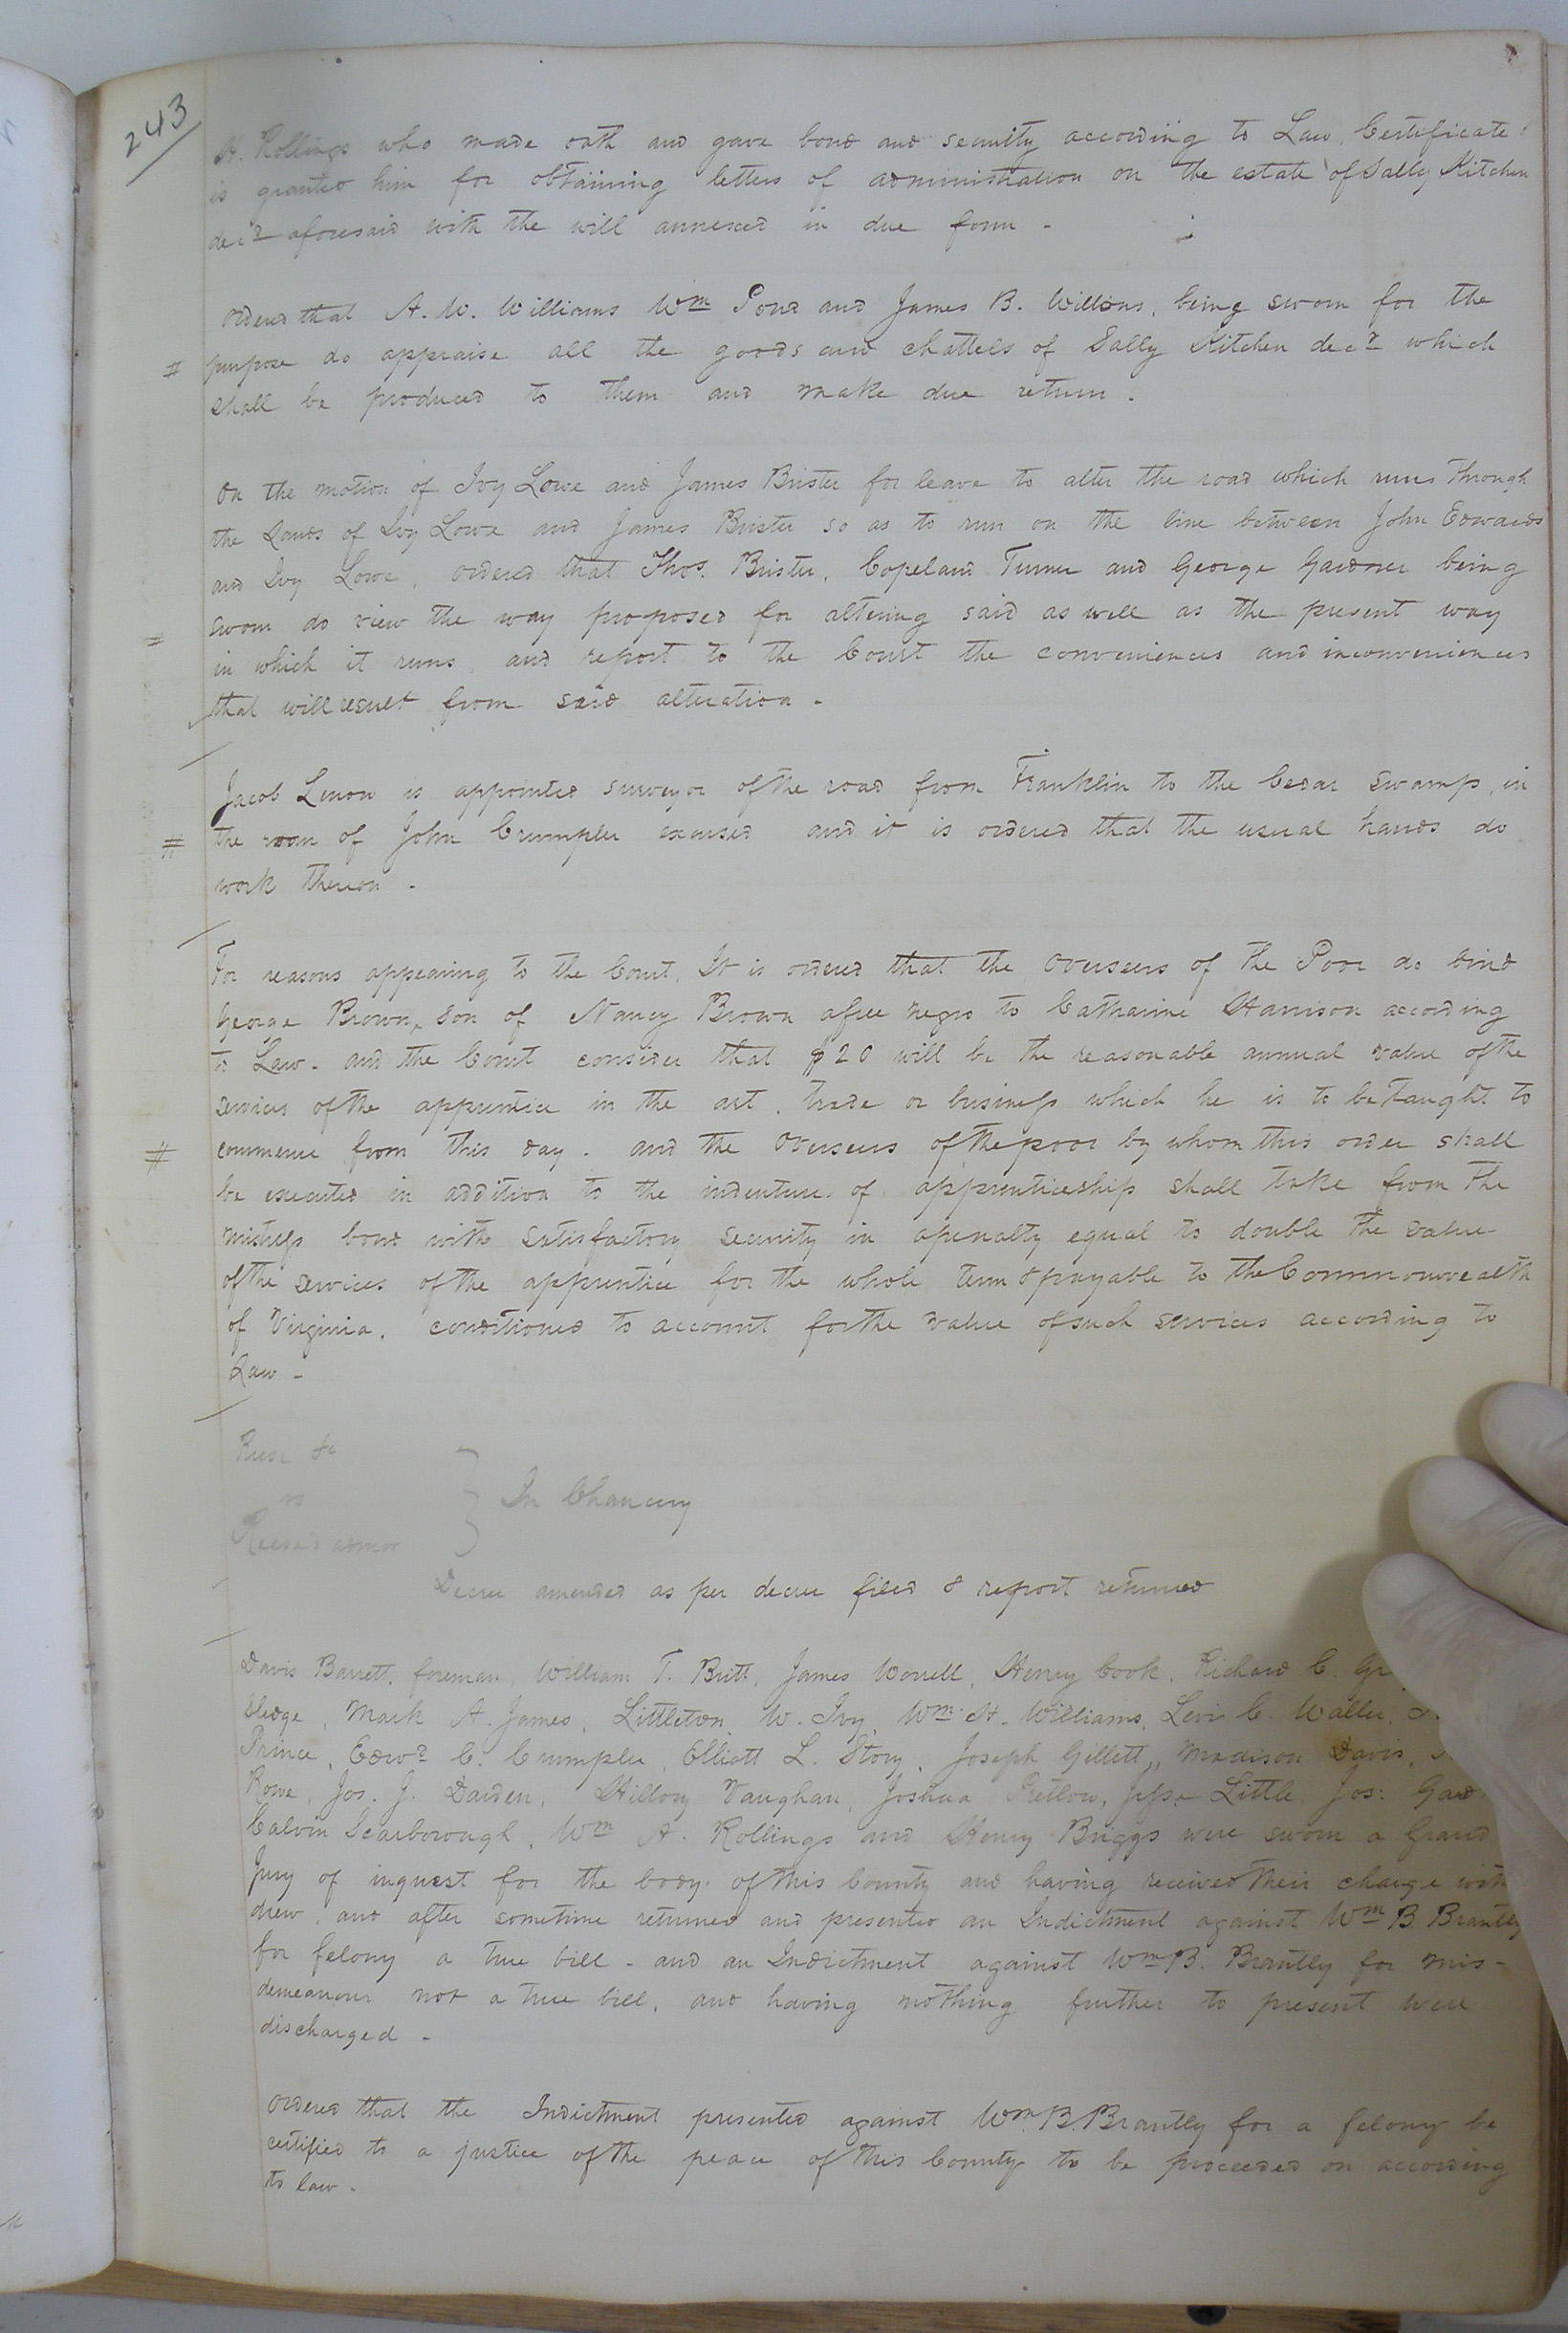 243
H. Rollings who made oath and gave bond and security according to Law, Certificate
is granted him for obtaining letters of administration on the estate of Sally Kitchen
decd aforesaid with the will annexed in due form -
Ordered that A. W. Williams Wm Pond and James B. Willons, being sworn for the
# purpose do appraise all the goods and chattels of Sally Kitchen decd which
shall be produced to them and make due return.
On the motion of Ivy Lowe and James Brister for leave to alter the road which runs through
the Lands of Ivy Lowe and James Brister so as to run on the line between John Edwards
and Ivy Lowe, ordered that Thos. Brister, Copeland Turner and George Gardner being
sworn do view the way proposed for altering said as well as the present way
in which it runs, and report to the Court the conveniences and inconveniences
that will result from said alteration -
Jacob Lenow is appointed surveyor of the road from Franklin to the Cedar Swamp, in
# the room of John Crumpler excused and it is ordered that the usual hands do
work thereon -
For reasons appearing to the Court, It is ordered that the Overseers of the Poor do bind
George Brown, son of Nancy Brown a free negro to Catharine Harrison according
to Law - and the Court consider that $20 will be the reasonable annual value of the
services of the apprentice in the art, trade or business which he is to be taught to
# commence from this day - and the Overseers of the poor by whom this order shall
be executed in addition to the indenture of apprenticeship shall take from the
mistress bond with satisfactory security in a penalty equal to double the value
of the services of the apprentice for the whole term & payable to the Commonwealth
of Virginia, conditioned to account for the value of such services according to
Law -
vs
In Chancery
Reese's admor
Decree amended as per decree filed & report returned
Davis Barrett, foreman, William T. Britt, James Worrell, Henry Cook, Richard C.
Sledge, Mark A. James, Littleton W. Ivy, Wm H. Williams, Levi C. Waller,
Prince, Edwd C. Crumpler, Elliott L. Story, Joseph Gillett, Madison Davis,
Rowe, Jos. J. Darden, Hillory Vaughan, Joshua Pretlow, Jesse Little, Jos:
Calvin Scarborough, Wm A. Rollings and Henry Briggs were sworn a Grand
Jury of inquest for the body of this County and having received their charge with
drew, and after sometime returned and presented an Indictment against Wm B Brantly
for felony a true bill - and an Indictment against Wm B. Brantly for mis-
demeanour not a true bill, and having nothing further to present were
discharged -
Ordered that the Indictment presented against Wm B. Brantly for a felony be
certified to a justice of the peace of this County to be proceeded on according
to law -